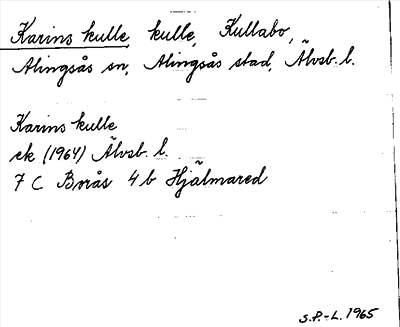 Karins kulle, kulle, Kullabo,
Alingsås sn, Alingsås stad, Älvsb. l.
Karins kulle
ek (1964) Älvsb. l.
7 C Borås 4 b Hjälmared
S.P.-L. 1965